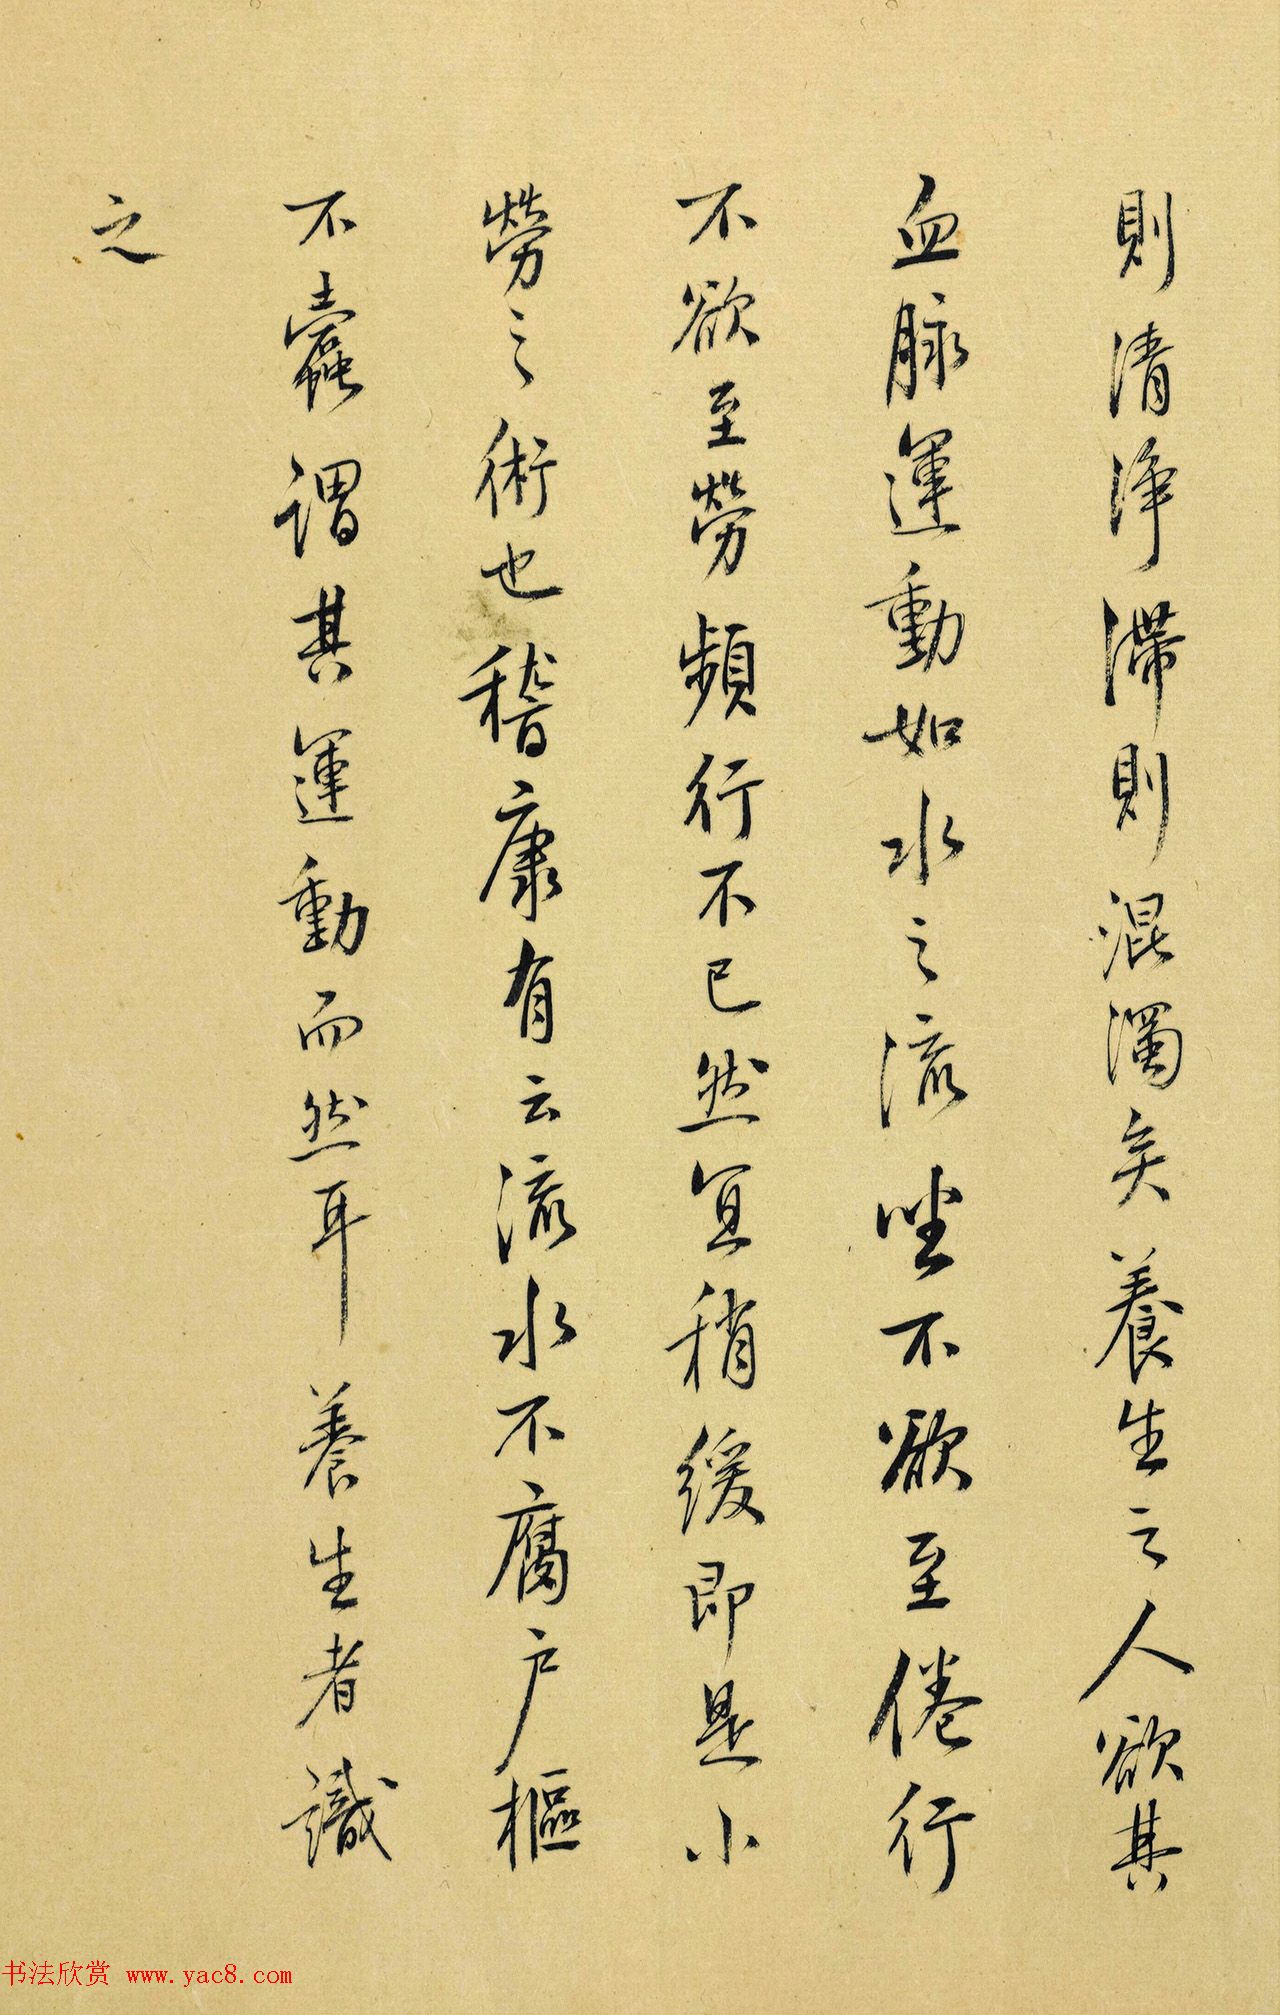 則清淨滯則混濁矣養生之人欲其
血脉運動如水之流坐不欲至倦行
不欲至勞頻行不已然宜稍緩即是小
勞之術也稽康有云流水不腐户樞
不蠹謂其運動而然耳養生者識
之
书法欣赏 www.yac8.com